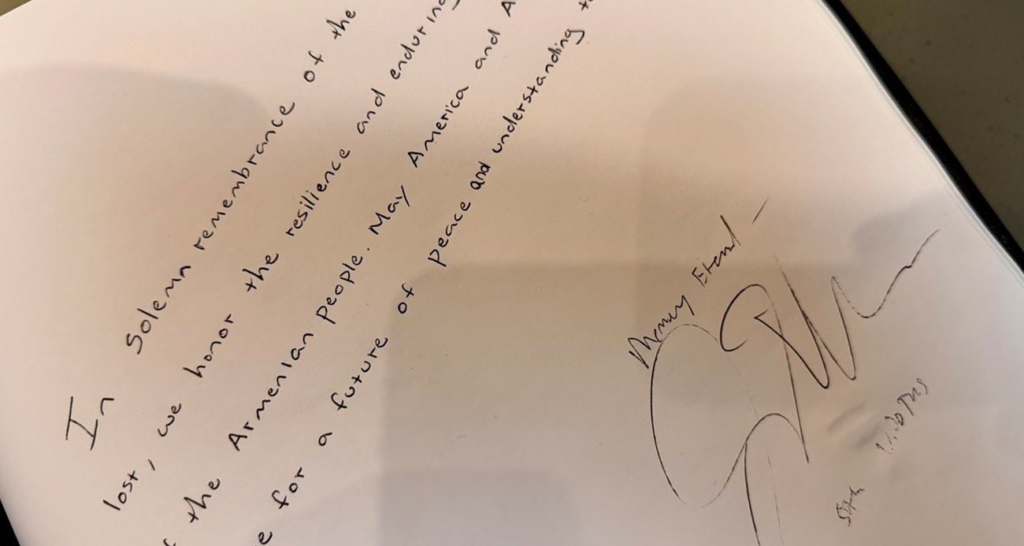 In Solemn remembrance of the
lost, we honor the resilience and enduring
the Armenian people. May America and A
for a future of peace and understanding
Memory